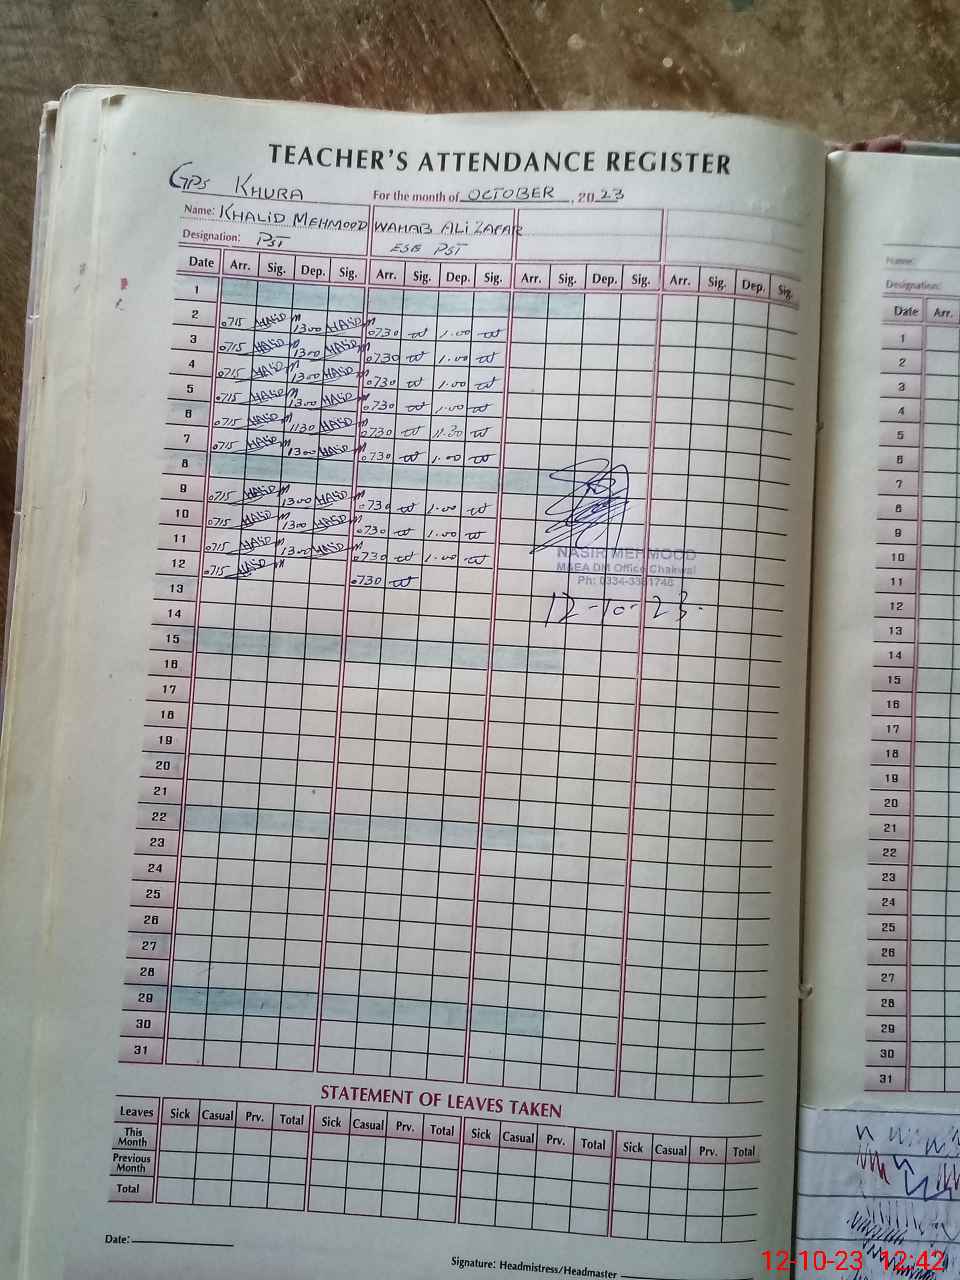 TEACHER'S ATTENDANCE REGISTER
GPS KHURA For the month of OCTOBER, 2023
Name: KHALID MEHMOOD WAHAB ALI ZAFAR
Designation: PST ESE PST
Date Arr. Sig. Dep. Sig. Arr. Sig. Dep. Sig. Arr. Sig. Dep. Sig. Arr. Sig. Dep. Sig.
1
2 0715 1300 0730 1.00
3 0715 1300 0730 1.00
4 0715 1300 0730 1.00
5 0715 1300 0730 1.00
6 0715 1130 0730 11.30
7 0715 1300 0730 1.00
8
9 0715 1300 0730 1.00
10 0715 1300 0730 1.00
11 0715 1300 0730 1.00
12 0715 0730
13
14
15
16
17
18
19
20
21
22
23
24
25
26
27
28
29
30
31
NASIR MEHMOOD
MAEA DM Office Chakwal
12-10-23.
STATEMENT OF LEAVES TAKEN
Leaves Sick Casual Prv. Total Sick Casual Prv. Total Sick Casual Prv. Total Sick Casual Prv. Total
This Month
Previous Month
Total
Date:
Signature: Headmistress/Headmaster
Name:
Designation:
Date Arr.
1
2
3
4
5
6
7
8
9
10
11
12
13
14
15
16
17
18
19
20
21
22
23
24
25
26
27
28
29
30
31
12-10-23 12:42